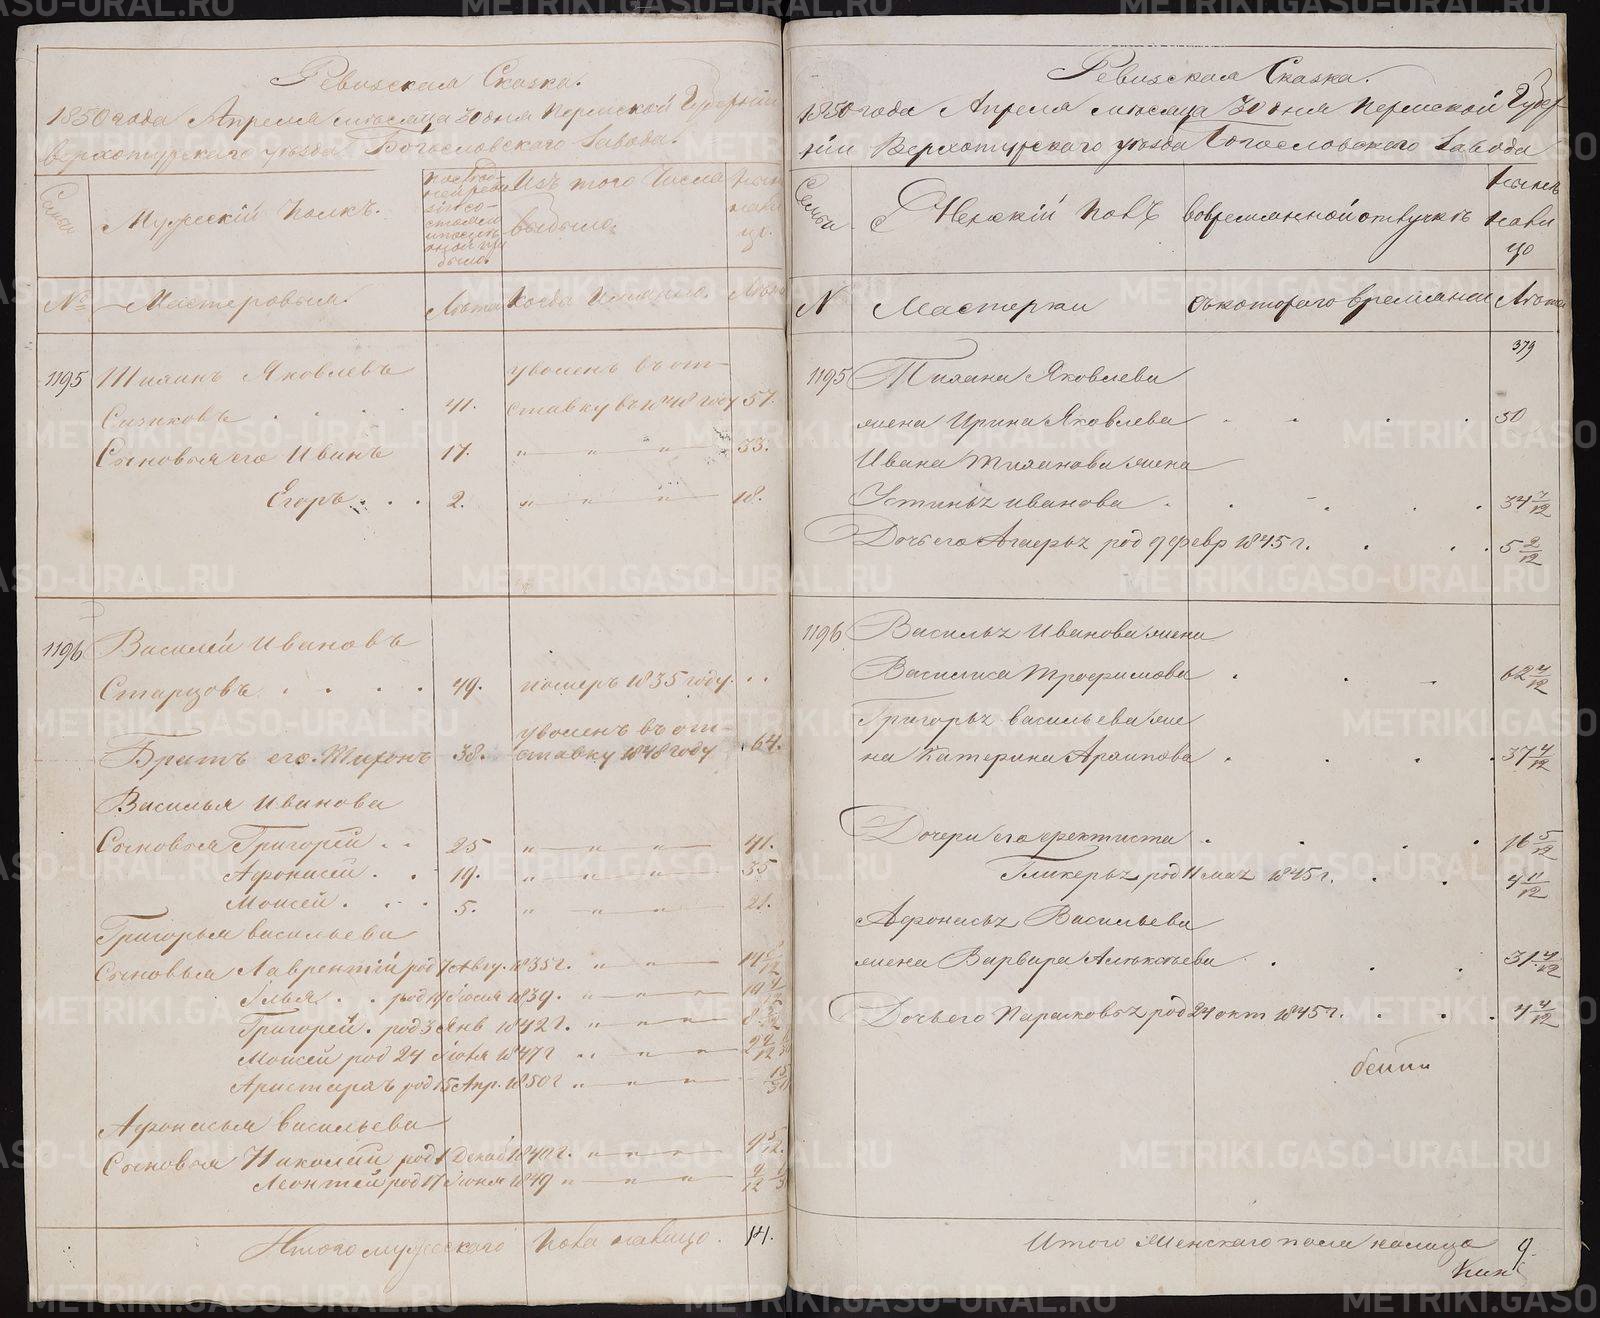 Ревизская Сказка.
1850 года Апреля месяца 30 дня Пермской Губернии
верхотурского уезда Богословского завода.
Семьи
Мужеский полъ.
по последней ревизiи состояло и после оной прибыло
Изъ того числа
выбыло.
ныне на лицо
№
Мастеровыя.
Лета
когда имянно.
Лета
1195 Тиханъ Яковлевъ
уволенъ въ от-
. . . . 41. ставку въ 1848 году 57.
Сыновья его Иванъ 17. " " " 33.
Егоръ . . . 2. " " " 18.
1196 Василей Ивановъ
Старцовъ . . . . 49. померъ 1835 году. . .
уволенъ въ от-
Братъ его Тихонъ 38. ставку 1848 году . 64.
Василья Иванова
Сыновья Григорей . . 25 " " " 41.
Афонасей . . 19. " " " 35
Моисей . . . 5. " " " 21.
Григорья васильева
Сыновья Лаврентiй род 7 Авгу. 1835 г. " " " 14 8/12
Iлья . . род 19 Июля 1839. " " "
Григорей . род 3 Янв 1842 г. " " " 8
Моисей род 24 1847 г " " "
Аристархъ род 15 Апр. 1850 г " " " 15/30
Афонасья васильева
Сыновья Николай род 1 Декаб 1840 г. " " " 9 5/12
Леонтей род 17 Июня 1849 " " "
Итого мужескаго пола налицо. 14.
Ревизская Сказка.
1850 года Апреля месяца 30 дня Пермской Губер-
нiи Верхотурского уезда Богословского завода
Семьи
Женскiй полъ
во временной отлучкъ
ныне на ли цо
N
Мастерки
съ котораго времяни
Лета
379
1195 Тихана Яковлева
жена Ирина Яковлева . . . . 50
Ивана Тиханова жена
Устинья иванова . . . . . 34 7/12
Дочь его Агаерья род 9 февр 1845 г. . . . 5 2/12
1196 Василья Иванова жена
Василиса Трофимова . . . 62 4/12
Григорья васильева же
на Катерина Архипова . . . . 37 4/12
Дочери его фектиста . . . . 16 5/12
Гликерья род 11 мая 1845 г. . . 4 11/12
Афонасья Васильева
жена Варвара Алексеева . . . 31 4/12
Дочь его Парасковья род 24 окт 1845 г. . . . 4 4/12
Итого Женскаго пола налицо 9.